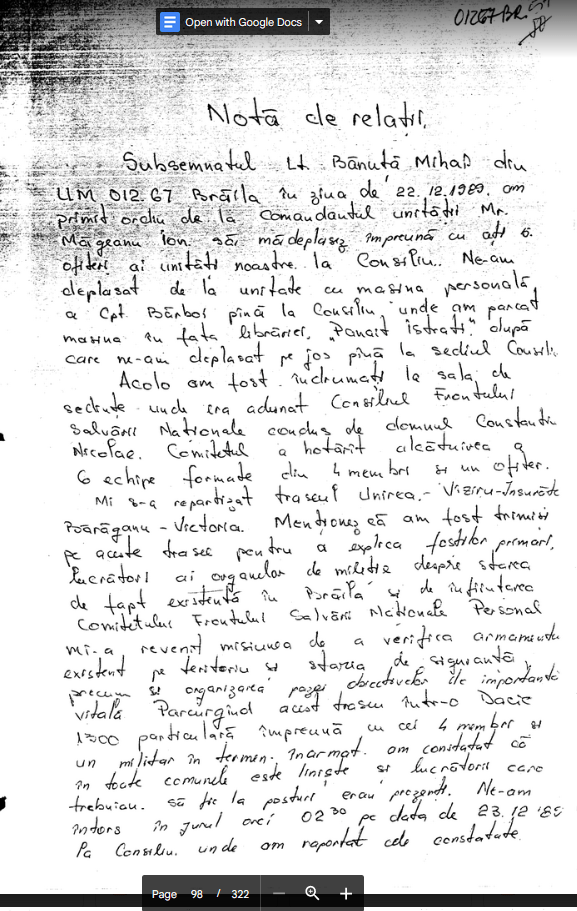 Open with Google Docs
01267 BR.
Notă de relații.
Subsemnatul Lt. Bănuță Mihai din
UM 01267 Brăila în ziua de 22.12.1989 am
primit ordin de la comandantul unității Mr.
Măgeanu Ion să mă deplasez împreună cu alți 6
ofițeri ai unității noastre la Consiliu. Ne-am
deplasat de la unitate cu mașina personală
a Cpt. Bărboi pînă la Consiliu unde am parcat
mașina în fața librăriei "Panait Istrati" după
care ne-am deplasat pe jos pînă la sediul Consili.
Acolo am fost îndrumați la sala de
ședințe unde era adunat Consiliul Frontului
Salvării Naționale condus de domnul Constantin
Nicolae. Comitetul a hotărît alcătuirea a
6 echipe formate din 4 membri și un ofițer.
Mi s-a repartizat traseul Unirea - Viziru - Însurăței
Bărăganu - Victoria. Menționez că am fost trimiși
pe aceste trasee pentru a explica foștilor primari,
lucrători ai organelor de miliție despre starea
de fapt existentă în Brăila și de înființarea
Comitetului Frontului Salvării Naționale Personal
mi-a revenit misiunea de a verifica armamentu
existent pe teritoriu și starea de siguranță,
precum și organizarea pazei obiectivelor de importanță
vitală Parcurgînd acest traseu într-o Dacie
1300 particulară împreună cu cei 4 membri și
un militar în termen înarmat am constatat că
în toate comunele este liniște și lucrătorii care
trebuiau să fie la posturi erau prezenți. Ne-am
întors în jurul orei 02 30 pe data de 23.12.'89
la Consiliu unde am raportat cele constatate.
Page 98 / 322